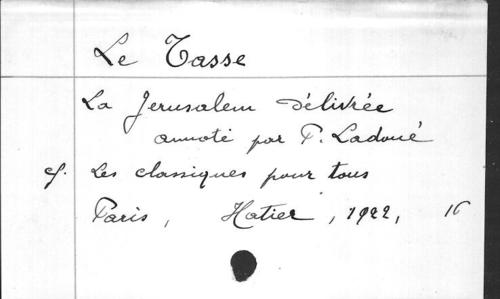 Le Tasse
La Jerusalem délivrée
annoté par P. Ladoué
cf. Les classiques pour tous
Paris, Hatier, 1922, 16